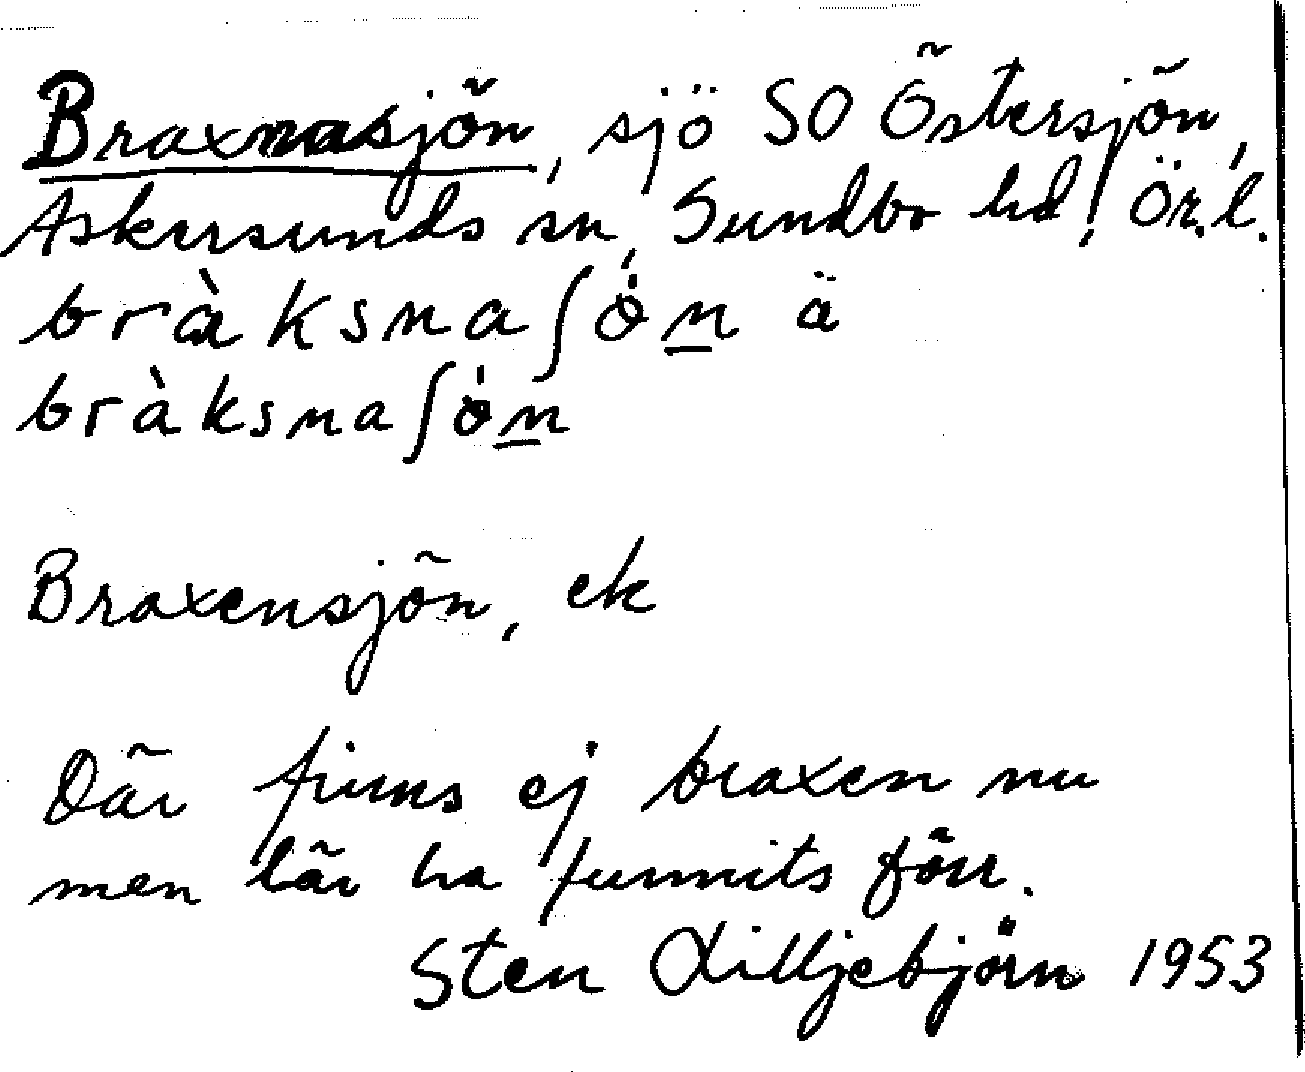 Braxnasjön, sjö SO Östersjön,
Askersunds sn, Sundbo hd, Ör.l.
bràksnaʃón ä
bràksnaʃón
Braxensjön, ek
Där finns ej braxen nu
men lär ha funnits förr.
Sten Lilljebjörn 1953